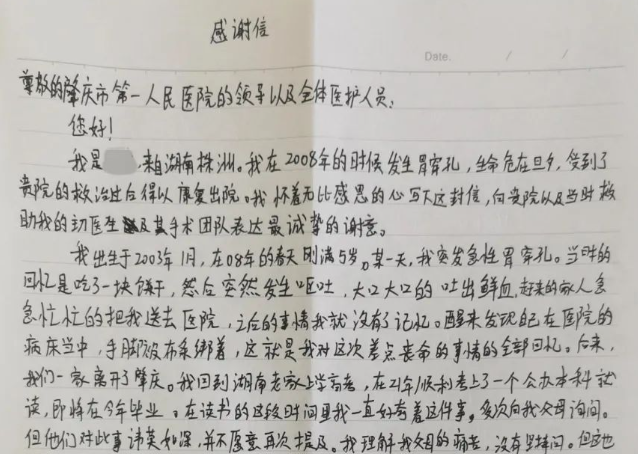 感谢信
Date. / /
尊敬的肇庆市第一人民医院的领导以及全体医护人员:
您好!
我是 来自湖南株洲。我在2008年的时候发生胃穿孔,生命危在旦夕,受到了
贵院的救治过后得以康复出院。我怀着无比感恩的心写下这封信,向贵院以及当时救
助我的 医生及其手术团队表达最诚挚的谢意。
我出生于2003年1月,在08年的春天刚满5岁。某一天,我突发急性胃穿孔。当时的
回忆是吃了一块饼干,然后突然发生呕吐,大口大口的吐出鲜血,赶来的家人急
急忙忙的把我送去医院,之后的事情我就没有了记忆。醒来发现自己在医院的
病床当中,手脚被布条绑着,这就是我对这次差点丧命的事情的全部回忆。后来,
我们一家离开了肇庆。我回到湖南老家上学高考,在21年顺利考上了一个公办本科就
读,即将在今年毕业。在读书的这段时间里我一直好奇着这件事。多次向我父母询问。
但他们对此事讳莫如深,并不愿意再次提及。我理解我父母的痛苦,没有坚持问。但这也